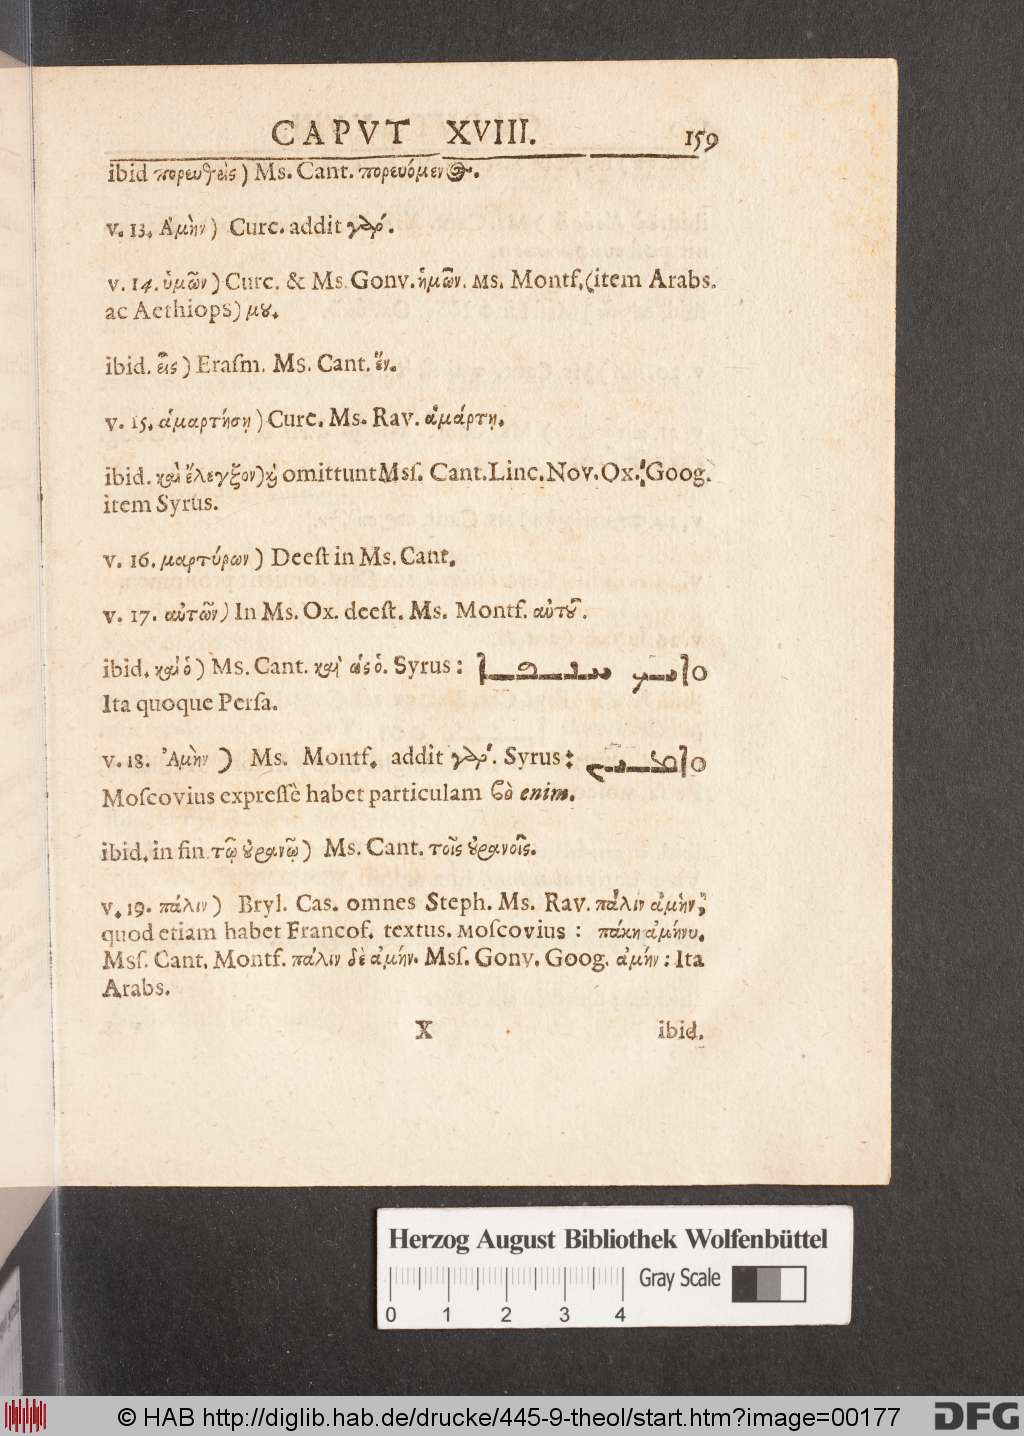 CAPVT XVIII. 159
ibid πορευθεὶς) Ms. Cant. πορευόμενος.
v. 13. Ἀμὴν) Curc. addit γάρ.
v. 14. ὑμῶν) Curc. & Ms. Gonv. ἡμῶν. Ms. Montf. (item Arabs.
ac Aethiops) μȣ.
ibid. εἷς) Eraſm. Ms. Cant. ἕν.
v. 15. ἁμαρτήσῃ) Curc. Ms. Rav. ἁμάρτῃ.
ibid. καὶ ἔλεγξον) ϗ omittunt Msſ. Cant. Linc. Nov. Ox. Goog.
item Syrus.
v. 16. μαρτύρων) Deeſt in Ms. Cant.
v. 17. αὐτῶν) In Ms. Ox. deeſt. Ms. Montf. αὐτȣ͂.
ibid. καὶ ὁ) Ms. Cant. καὶ ὡς ὁ. Syrus:
Ita quoque Perſa.
v. 18. Ἀμὴν) Ms. Montf. addit γάρ. Syrus:
Moſcovius expreſſè habet particulam enim.
ibid. in fin. τῷ ȣ̓ρανῷ) Ms. Cant. τοῖς ȣ̓ρανοῖς.
v. 19. πάλιν) Bryl. Caſ. omnes Steph. Ms. Rav. πάλιν ἀμὴν,
quod etiam habet Francof. textus. Moſcovius: πάκη ἀμήνυ.
Msſ. Cant. Montf. πάλιν δὲ ἀμήν. Msſ. Gonv. Goog. ἀμήν: Ita
Arabs.
X ibid.
Herzog August Bibliothek Wolfenbüttel
Gray Scale
0 1 2 3 4
© HAB http://diglib.hab.de/drucke/445-9-theol/start.htm?image=00177
DFG